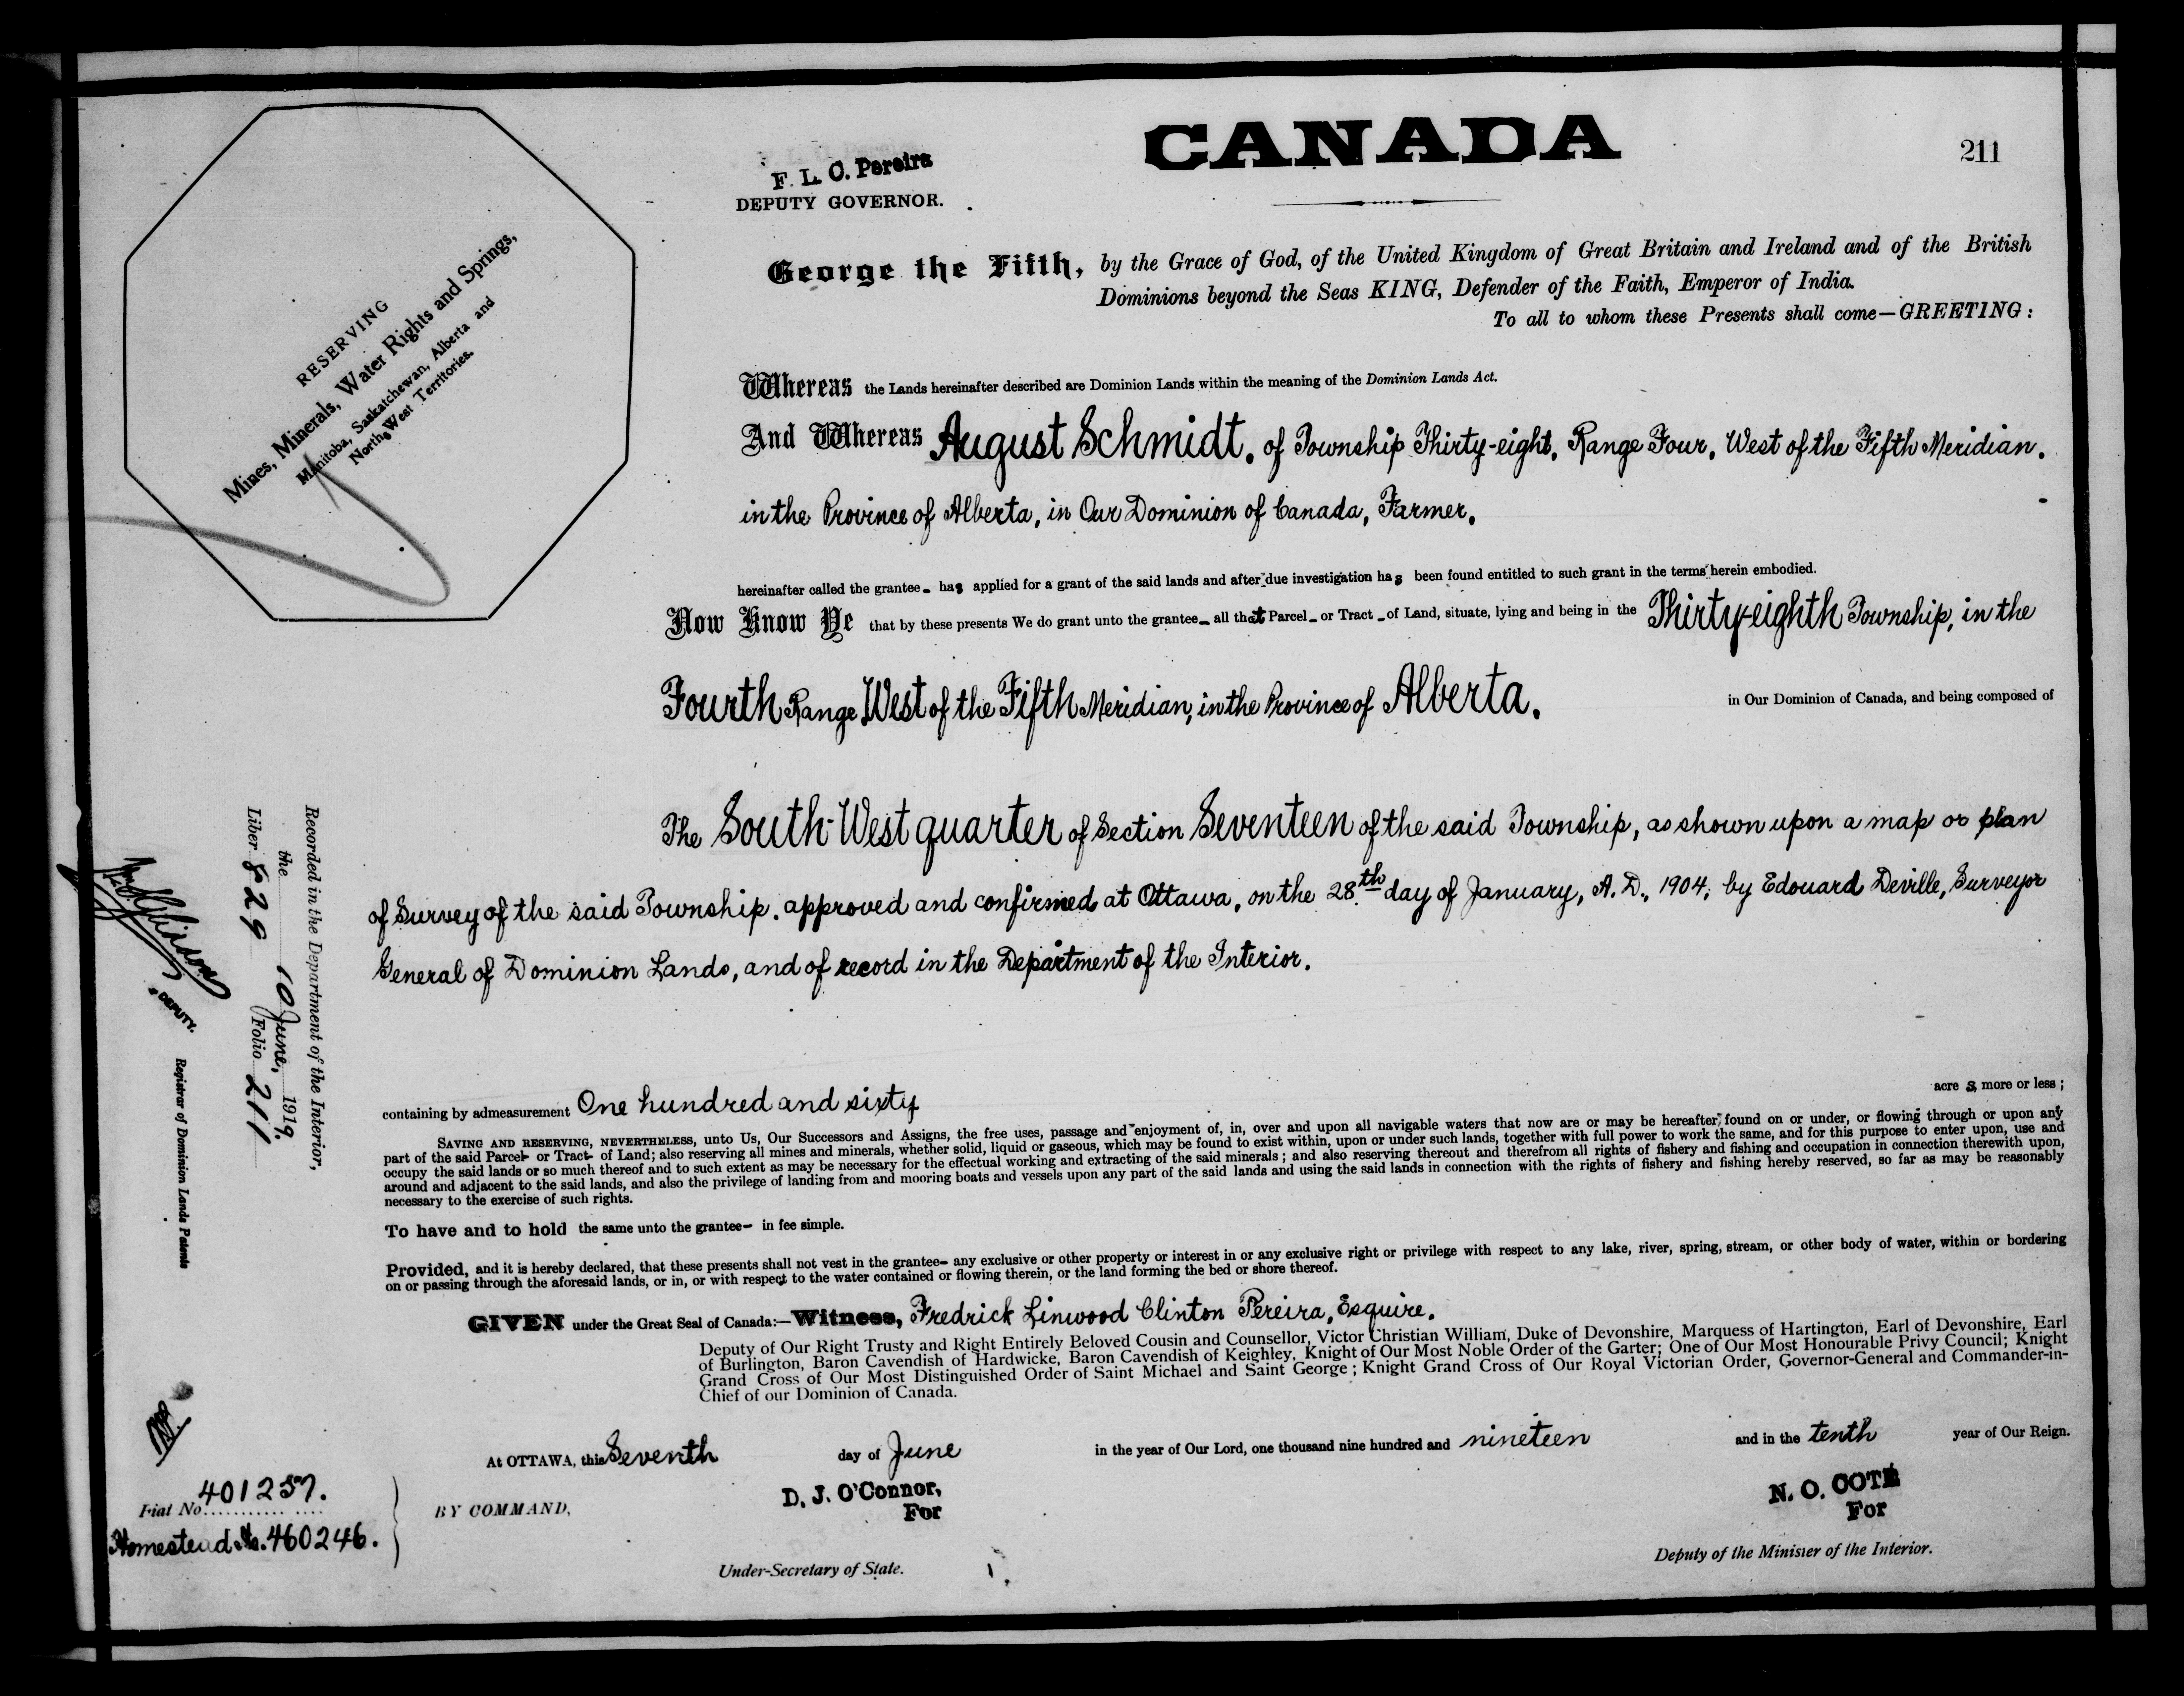 CANADA
211
F. L. C. Pereira
DEPUTY GOVERNOR.
RESERVING
Mines, Minerals, Water Rights and Springs,
Manitoba, Saskatchewan, Alberta and
North West Territories.
George the Fifth, by the Grace of God, of the United Kingdom of Great Britain and Ireland and of the British
Dominions beyond the Seas KING, Defender of the Faith, Emperor of India.
To all to whom these Presents shall come—GREETING:
Whereas the Lands hereinafter described are Dominion Lands within the meaning of the Dominion Lands Act.
And Whereas August Schmidt, of Township Thirty-eight, Range Four, West of the Fifth Meridian,
in the Province of Alberta, in Our Dominion of Canada, Farmer,
hereinafter called the grantee- has applied for a grant of the said lands and after due investigation has been found entitled to such grant in the terms herein embodied.
Now Know Ye that by these presents We do grant unto the grantee- all that Parcel- or Tract- of Land, situate, lying and being in the Thirty-eighth Township, in the
Fourth Range West of the Fifth Meridian, in the Province of Alberta, in Our Dominion of Canada, and being composed of
The South-West quarter of Section Seventeen of the said Township, as shown upon a map or plan
of Survey of the said Township, approved and confirmed at Ottawa, on the 28th day of January, A.D., 1904, by Edouard Deville, Surveyor
General of Dominion Lands, and of record in the Department of the Interior.
Recorded in the Department of the Interior,
the 10 June, 1919.
Liber 829 Folio 211
DEPUTY.
Registrar of Dominion Lands Patents
containing by admeasurement One hundred and sixty acres, more or less;
SAVING AND RESERVING, NEVERTHELESS, unto Us, Our Successors and Assigns, the free uses, passage and enjoyment of, in, over and upon all navigable waters that now are or may be hereafter found on or under, or flowing through or upon any
part of the said Parcel- or Tract- of Land; also reserving all mines and minerals, whether solid, liquid or gaseous, which may be found to exist within, upon or under such lands, together with full power to work the same, and for this purpose to enter upon, use and
occupy the said lands or so much thereof and to such extent as may be necessary for the effectual working and extracting of the said minerals; and also reserving thereout and therefrom all rights of fishery and fishing and occupation in connection therewith upon,
around and adjacent to the said lands, and also the privilege of landing from and mooring boats and vessels upon any part of the said lands and using the said lands in connection with the rights of fishery and fishing hereby reserved, so far as may be reasonably
necessary to the exercise of such rights.
To have and to hold the same unto the grantee- in fee simple.
Provided, and it is hereby declared, that these presents shall not vest in the grantee- any exclusive or other property or interest in or any exclusive right or privilege with respect to any lake, river, spring, stream, or other body of water, within or bordering
on or passing through the aforesaid lands, or in, or with respect to the water contained or flowing therein, or the land forming the bed or shore thereof.
GIVEN under the Great Seal of Canada:—Witness, Fredrick Linwood Clinton Pereira, Esquire.
Deputy of Our Right Trusty and Right Entirely Beloved Cousin and Counsellor, Victor Christian William, Duke of Devonshire, Marquess of Hartington, Earl of Devonshire, Earl
of Burlington, Baron Cavendish of Hardwicke, Baron Cavendish of Keighley, Knight of Our Most Noble Order of the Garter; One of Our Most Honourable Privy Council; Knight
Grand Cross of Our Most Distinguished Order of Saint Michael and Saint George; Knight Grand Cross of Our Royal Victorian Order, Governor-General and Commander-in-
Chief of our Dominion of Canada.
At OTTAWA, this Seventh day of June in the year of Our Lord, one thousand nine hundred and nineteen and in the tenth year of Our Reign.
Fiat No. 401257.
Homestead No. 460246.
BY COMMAND,
D. J. O'Connor,
For
Under-Secretary of State.
N. O. COTE
For
Deputy of the Minister of the Interior.